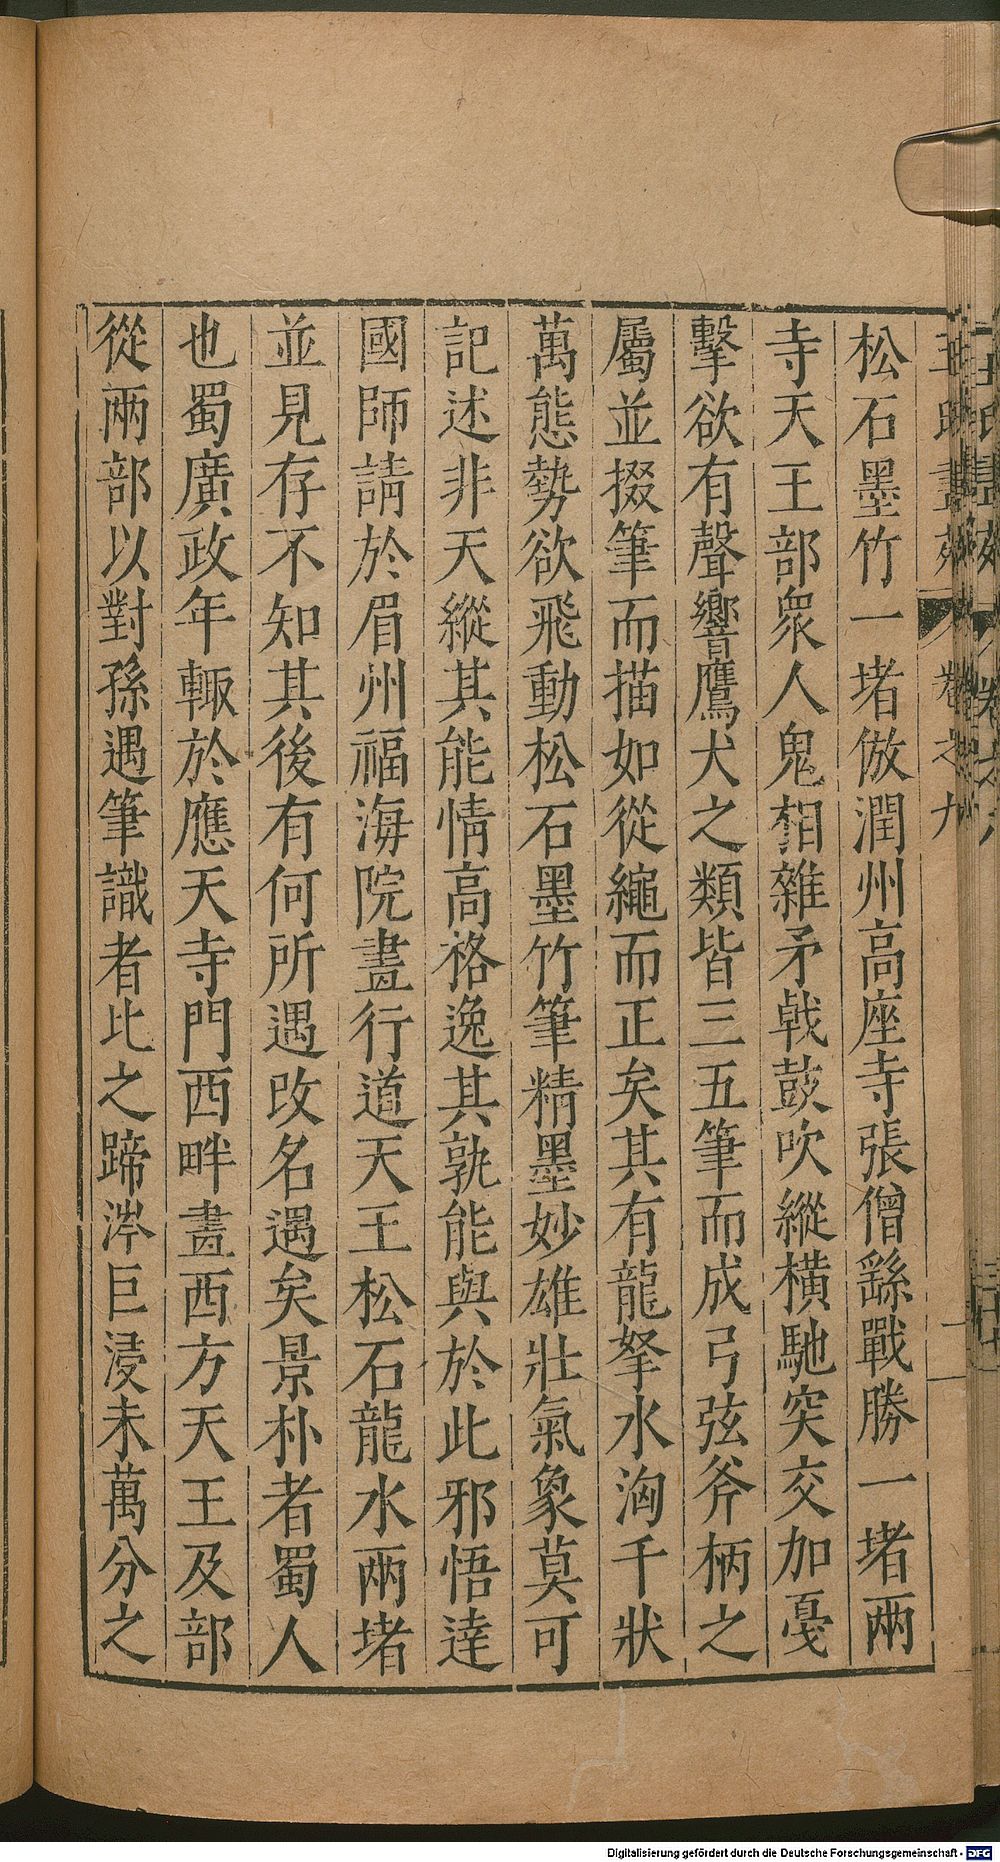 松石墨竹一堵倣潤州高座寺張僧繇戰勝一堵兩
寺天王部衆人鬼相雜矛戟鼓吹縱橫馳突交加戛
擊欲有聲響鷹犬之類皆三五筆而成弓弦斧柄之
屬並掇筆而描如從繩而正矣其有龍拏水洶千狀
萬態勢欲飛動松石墨竹筆精墨妙雄壯氣象莫可
記述非天縱其能情高格逸其孰能與於此邪悟達
國師請於眉州福海院畫行道天王松石龍水兩堵
並見存不知其後有何所遇改名遇矣景朴者蜀人
也蜀廣政年輙於應天寺門西畔畫西方天王及部
從兩部以對孫遇筆識者比之蹄涔巨浸未萬分之
Digitalisierung gefördert durch die Deutsche Forschungsgemeinschaft - DFG